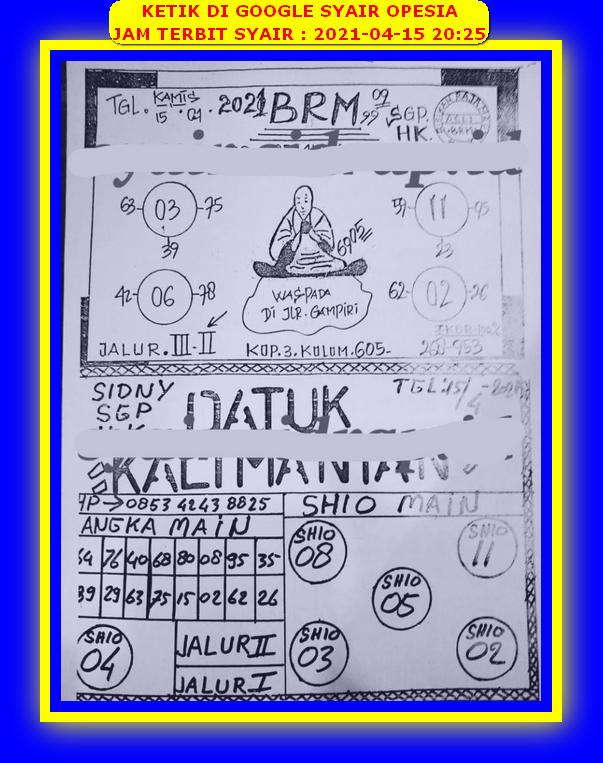 KETIK DI GOOGLE SYAIR OPESIA
JAM TERBIT SYAIR : 2021-04-15 20:25
TGL. KAMIS 15 . 04 . 2021 BRM 09 99 SGP.
HK.
63 03 75
39
59 11 95
23
6905
42 06 78
62 02 26
WASPADA
DI JLR. GAMPIRI
JALUR. III-II
KOP.3.KOLOM.605-
SIDNY
SGP
DATUK
KALIMANTAN
HP → 0853 4243 8825
SHIO MAIN
ANGKA MAIN
76 40 68 80 08 95 35
29 63 75 15 02 62 26
SHIO 08
SHIO 11
SHIO 05
SHIO 04
JALUR II
JALUR I
SHIO 03
SHIO 02